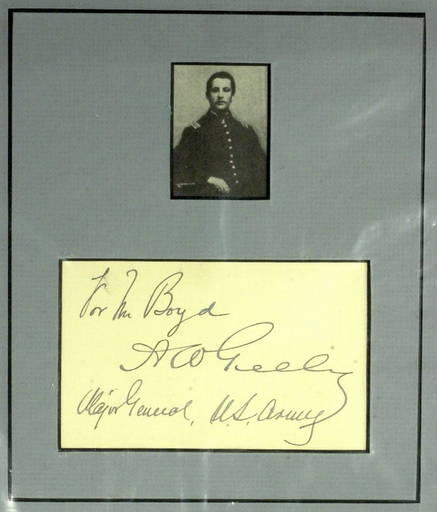 For Mr Boyd
A W Greely
Major General, U.S. Army